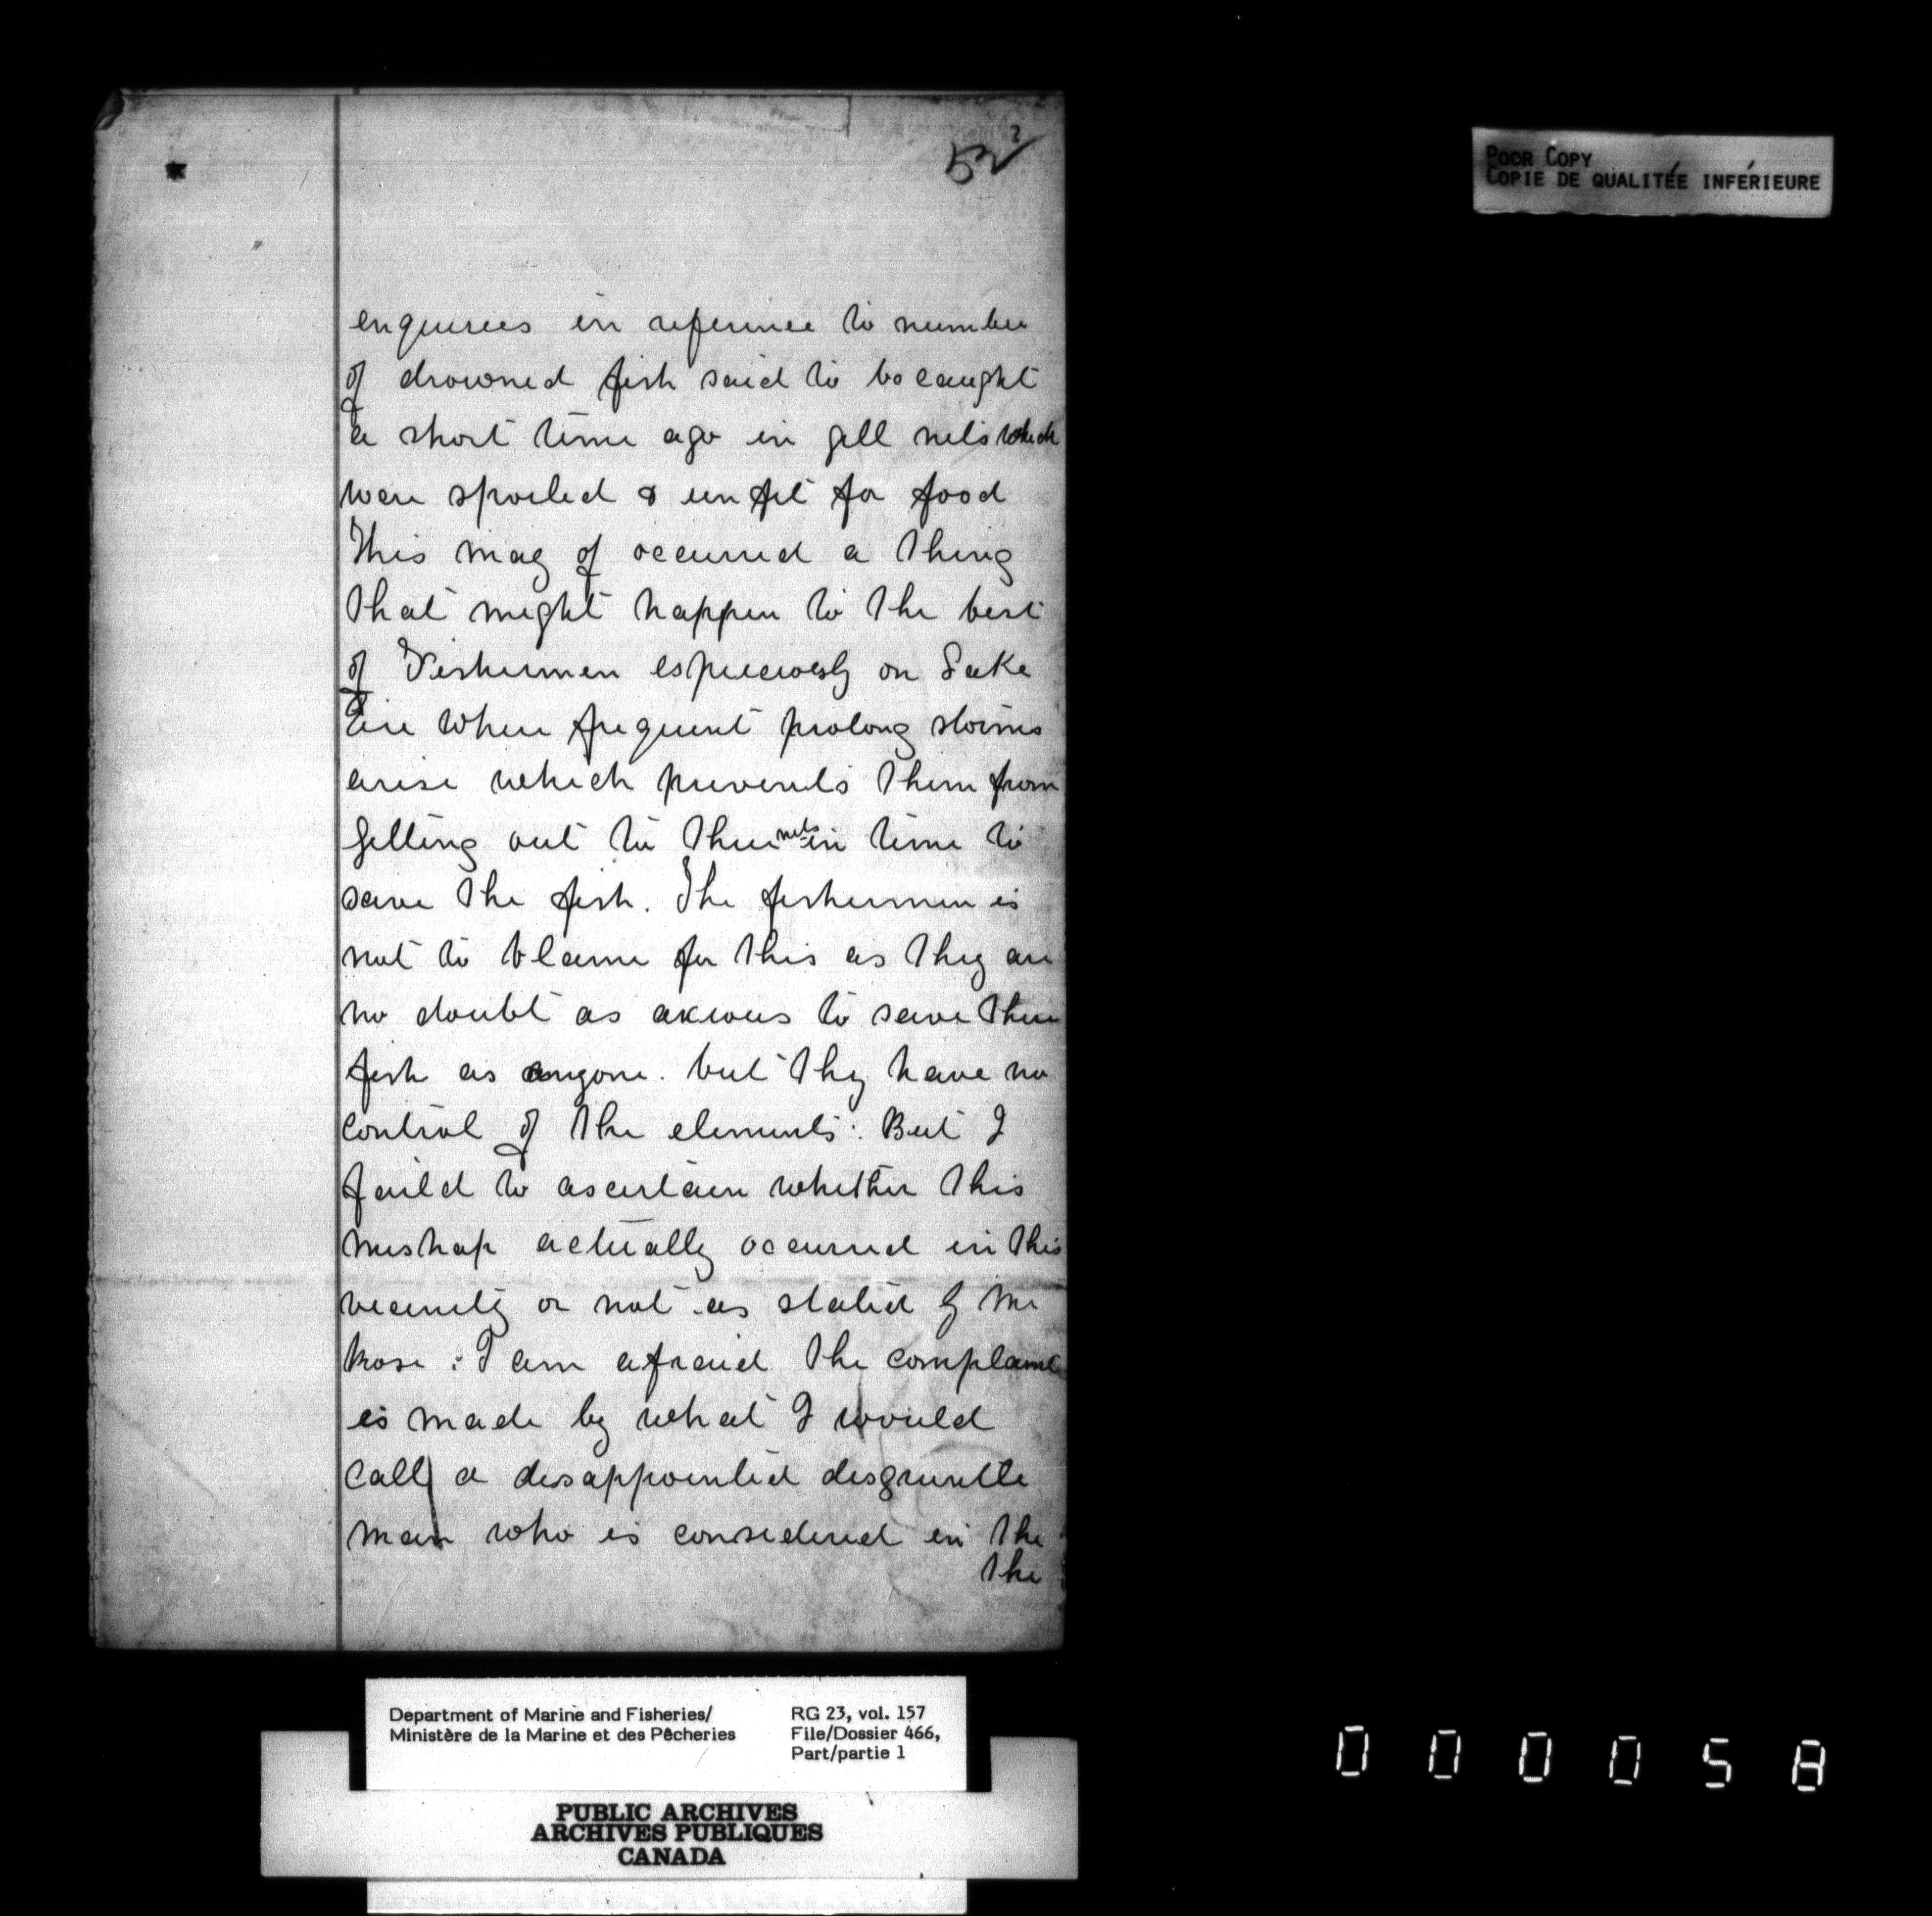 52
POOR COPY
COPIE DE QUALITÉE INFÉRIEURE
enquiries in reference to number
of drowned fish said to be caught
a short time ago in gill nets which
were spoiled & unfit for food
This may of occurred a thing
that might happen to the best
of Fishermen especiously on Lake
Erie where frequent prolong storms
arise which prevents them from
getting out to their nets in time to
save the fish. The fishermen is
not to blame for this as they are
no doubt as axious to save their
fish as anyone. but they have no
control of the elements. But I
faild to ascertain whether this
mishap actually occurred in this
vicinity or not as stated by Mr
: I am afraid the complaint
is made by what I would
call a disappointed disgruntle
man who is considered in the
the
Department of Marine and Fisheries/
Ministère de la Marine et des Pêcheries
RG 23, vol. 157
File/Dossier 466,
Part/partie 1
PUBLIC ARCHIVES
ARCHIVES PUBLIQUES
CANADA
000058